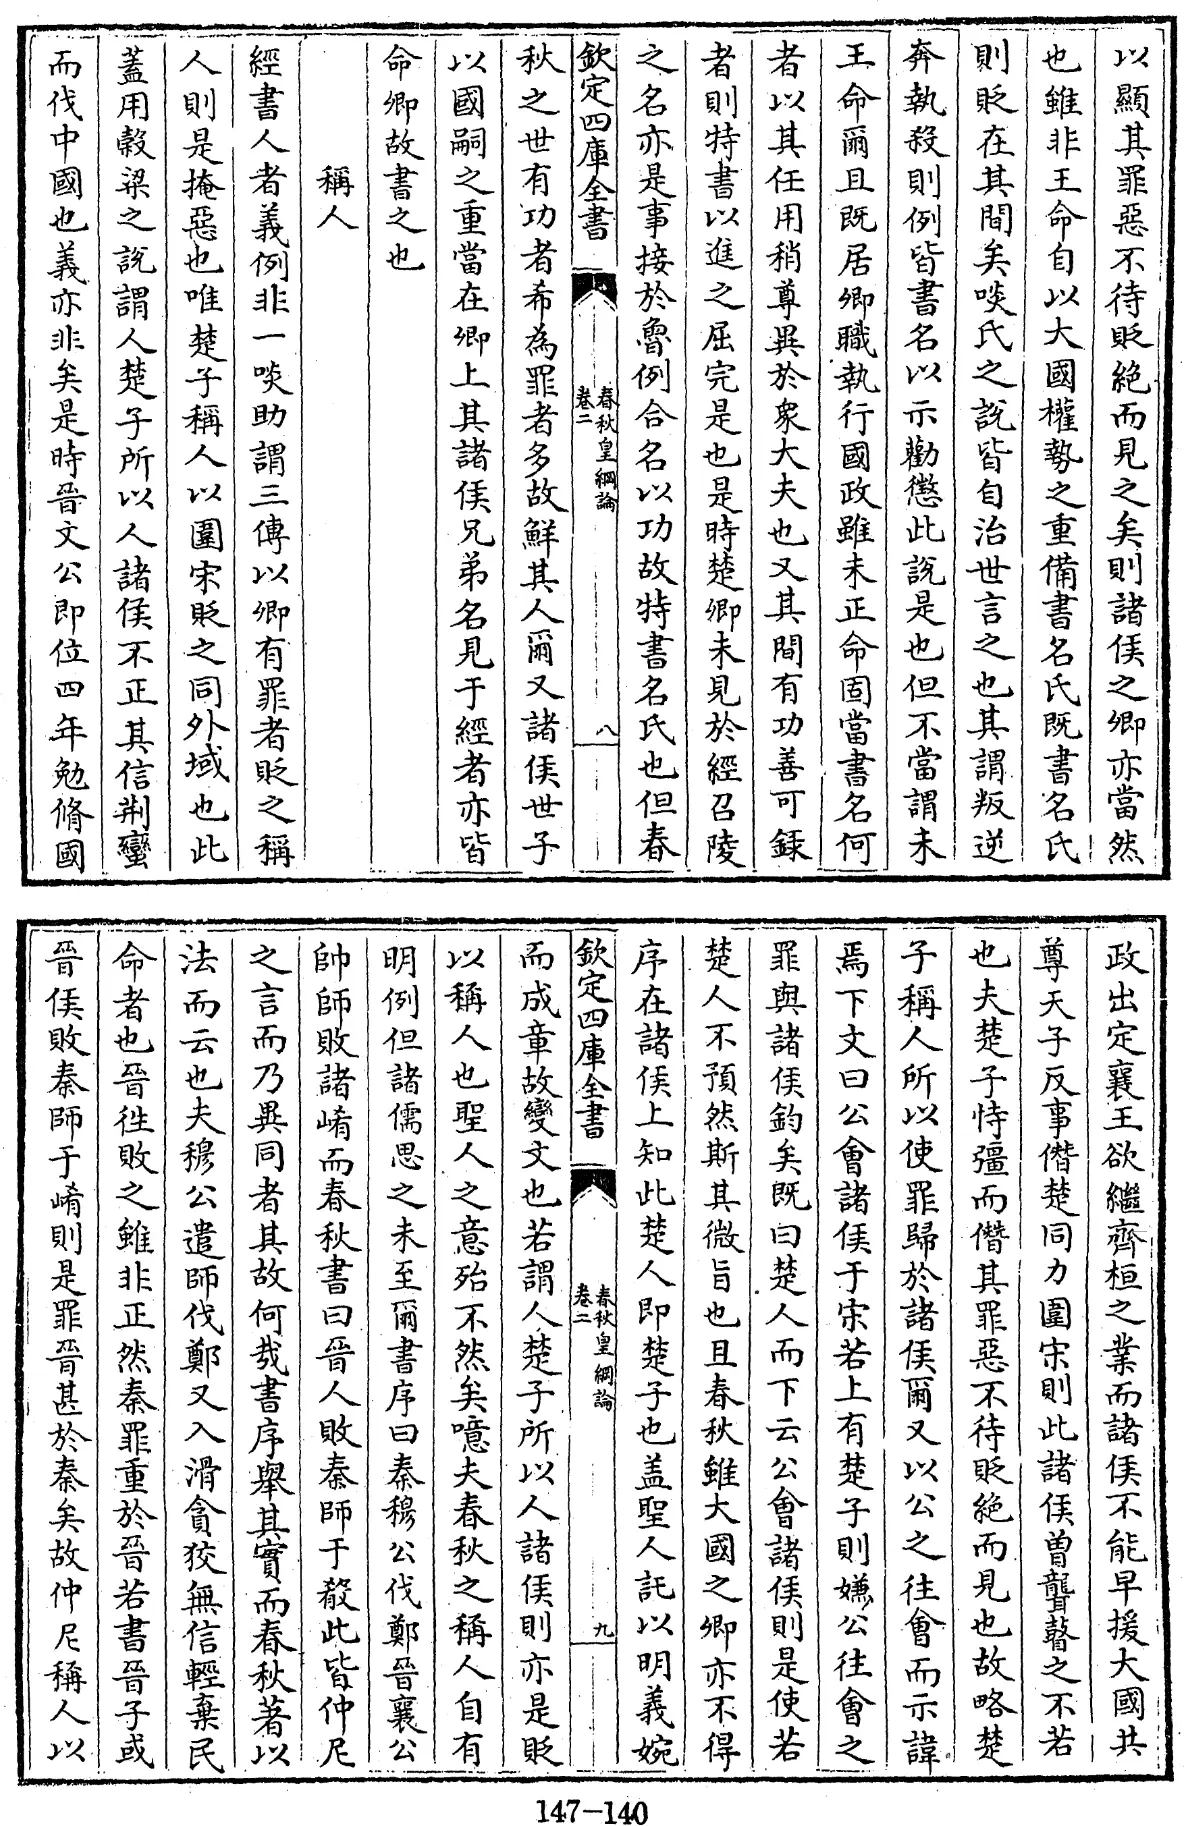 以顯其罪惡不待貶絶而見之矣則諸侯之卿亦當然
也雖非王命自以大國權勢之重備書名氏既書名氏
則貶在其間矣啖氏之說皆自治世言之也其謂叛逆
奔執殺則例皆書名以示勸懲此說是也但不當謂未
王命爾且既居卿職執行國政雖未正命固當書名何
者以其任用稍尊異於衆大夫也又其間有功善可録
者則特書以進之屈完是也是時楚卿未見於經召陵
之名亦是事接於魯例合名以功故特書名氏也但春
欽定四庫全書
春秋皇綱論
卷二
八
秋之世有功者希為罪者多故鮮其人爾又諸侯世子
以國嗣之重當在卿上其諸侯兄弟名見于經者亦皆
命卿故書之也
稱人
經書人者義例非一啖助謂三傳以卿有罪者貶之稱
人則是掩惡也唯楚子稱人以圍宋貶之同外域也此
蓋用穀梁之說謂人楚子所以人諸侯不正其信荆蠻
而伐中國也義亦非矣是時晉文公即位四年勉脩國
政出定襄王欲繼齊桓之業而諸侯不能早援大國共
尊天子反事僭楚同力圍宋則此諸侯曽聾瞽之不若
也夫楚子恃彊而僭其罪惡不待貶絶而見也故略楚
子稱人所以使罪歸於諸侯爾又以公之往會而示諱
焉下文曰公會諸侯于宋若上有楚子則嫌公往會之
罪與諸侯鈞矣既曰楚人而下云公會諸侯則是使若
楚人不預然斯其微旨也且春秋雖大國之卿亦不得
序在諸侯上知此楚人即楚子也盖聖人託以明義婉
欽定四庫全書
春秋皇綱論
卷二
九
而成章故變文也若謂人楚子所以人諸侯則亦是貶
以稱人也聖人之意殆不然矣噫夫春秋之稱人自有
明例但諸儒思之未至爾書序曰秦穆公伐鄭晉襄公
帥師敗諸崤而春秋書曰晉人敗秦師于殽此皆仲尼
之言而乃異同者其故何哉書序舉其實而春秋著以
法而云也夫穆公遣師伐鄭又入滑貪狡無信輕棄民
命者也晉徃敗之雖非正然秦罪重於晉若書晉子或
晉侯敗秦師于崤則是罪晉甚於秦矣故仲尼稱人以
147-140